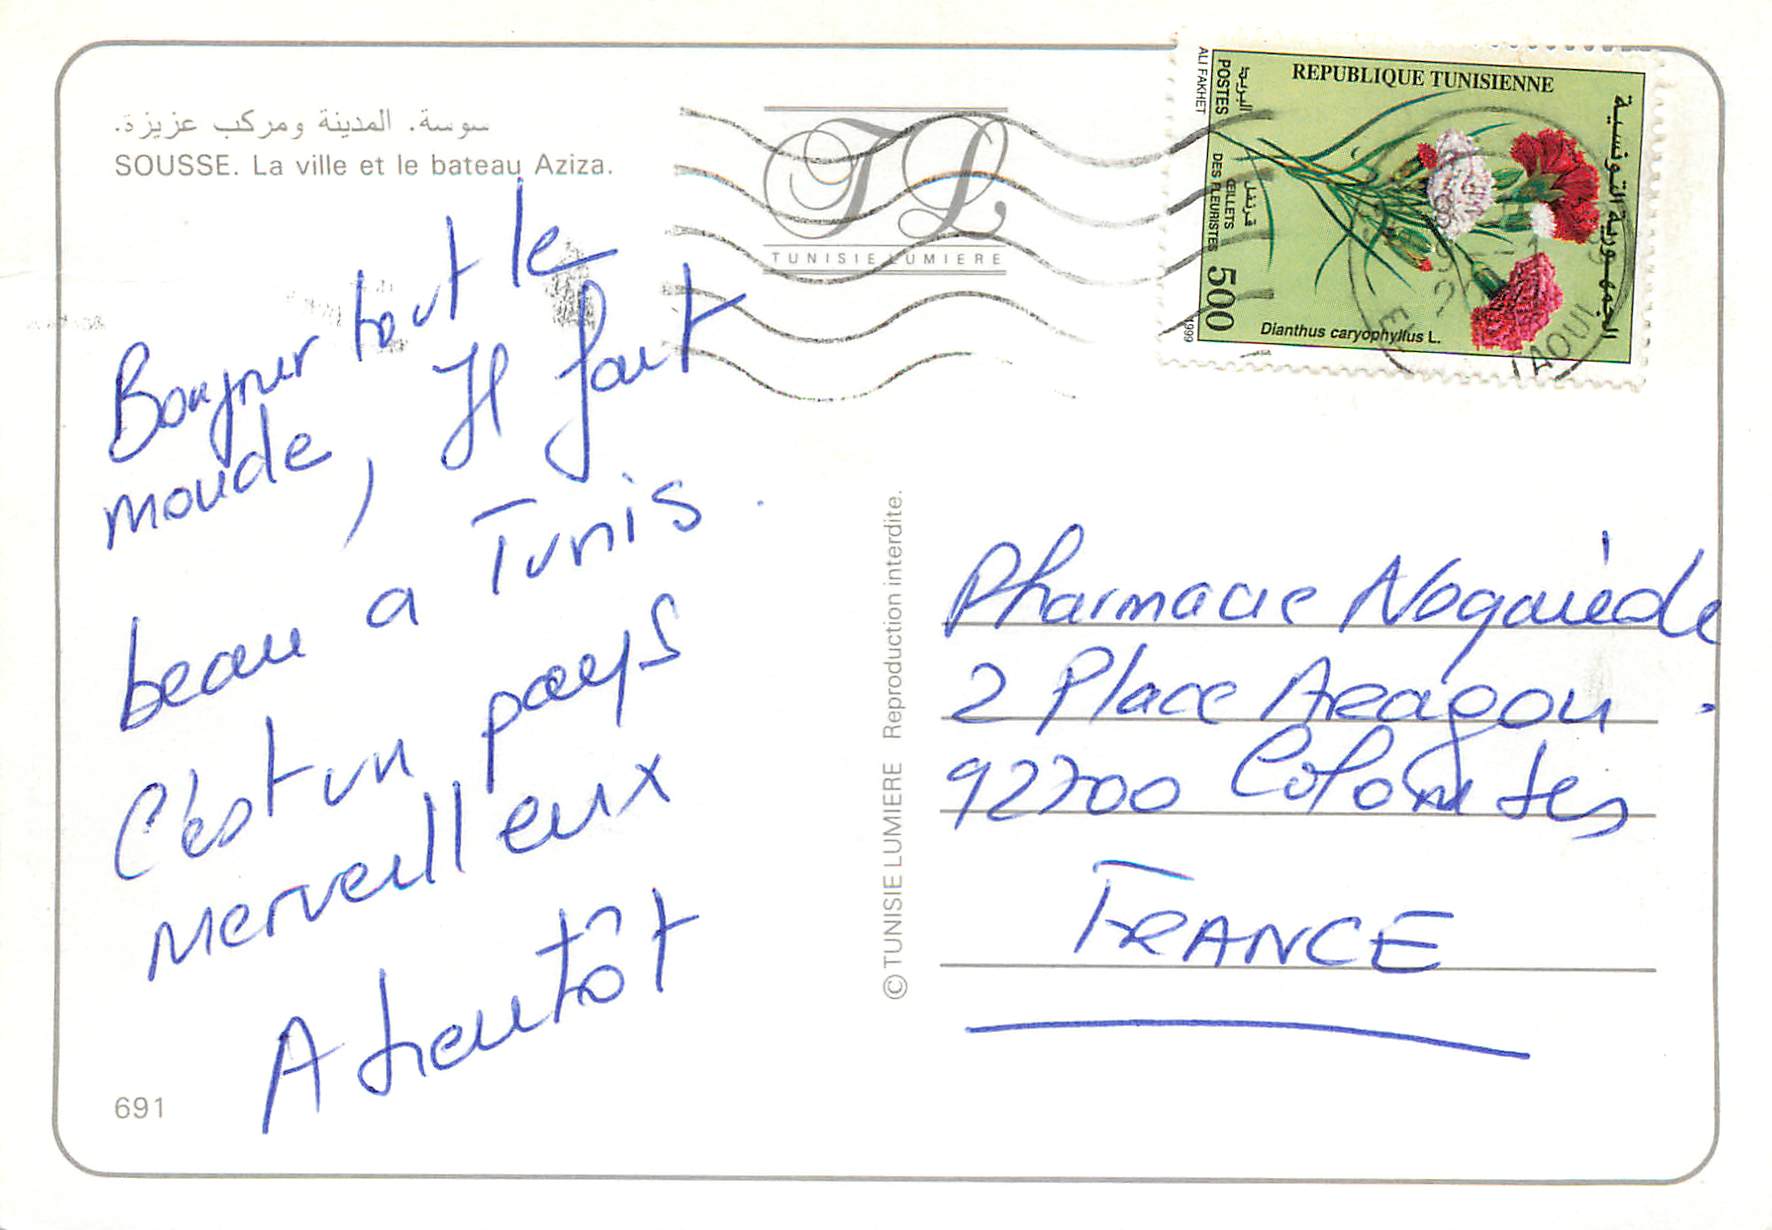 سوسة. المدينة ومركب عزيزة.
SOUSSE. La ville et le bateau Aziza.
TL
TUNISIE LUMIERE
REPUBLIQUE TUNISIENNE
الجمهورية التونسية
البريد
POSTES
قرنفل
ŒILLETS
DES FLEURISTES
500
Dianthus caryophyllus L.
ALI FAKHET
1999
Bonjour tout le
monde, Il fait
beau a Tunis.
C'est un pays
merveilleux
A bientôt
© TUNISIE LUMIERE Reproduction interdite.
Pharmacie
2 Place Aragon.
92700 Colombes
FRANCE
691